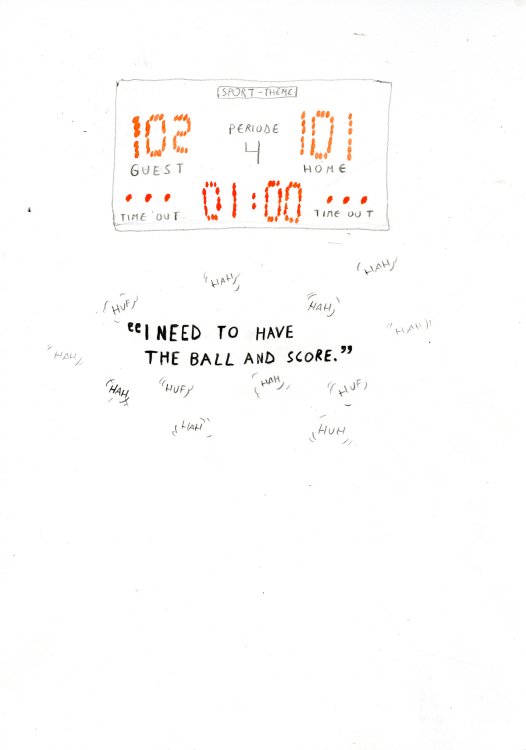 SPORT-THEME
102 PERIODE 101
4
GUEST HOME
... 01:00 ...
TIME OUT TIME OUT
HAH
HAH
HUF HAH
HAH
“I NEED TO HAVE
HAH
THE BALL AND SCORE.”
HAH HUF HAH HUF
HAH HUH